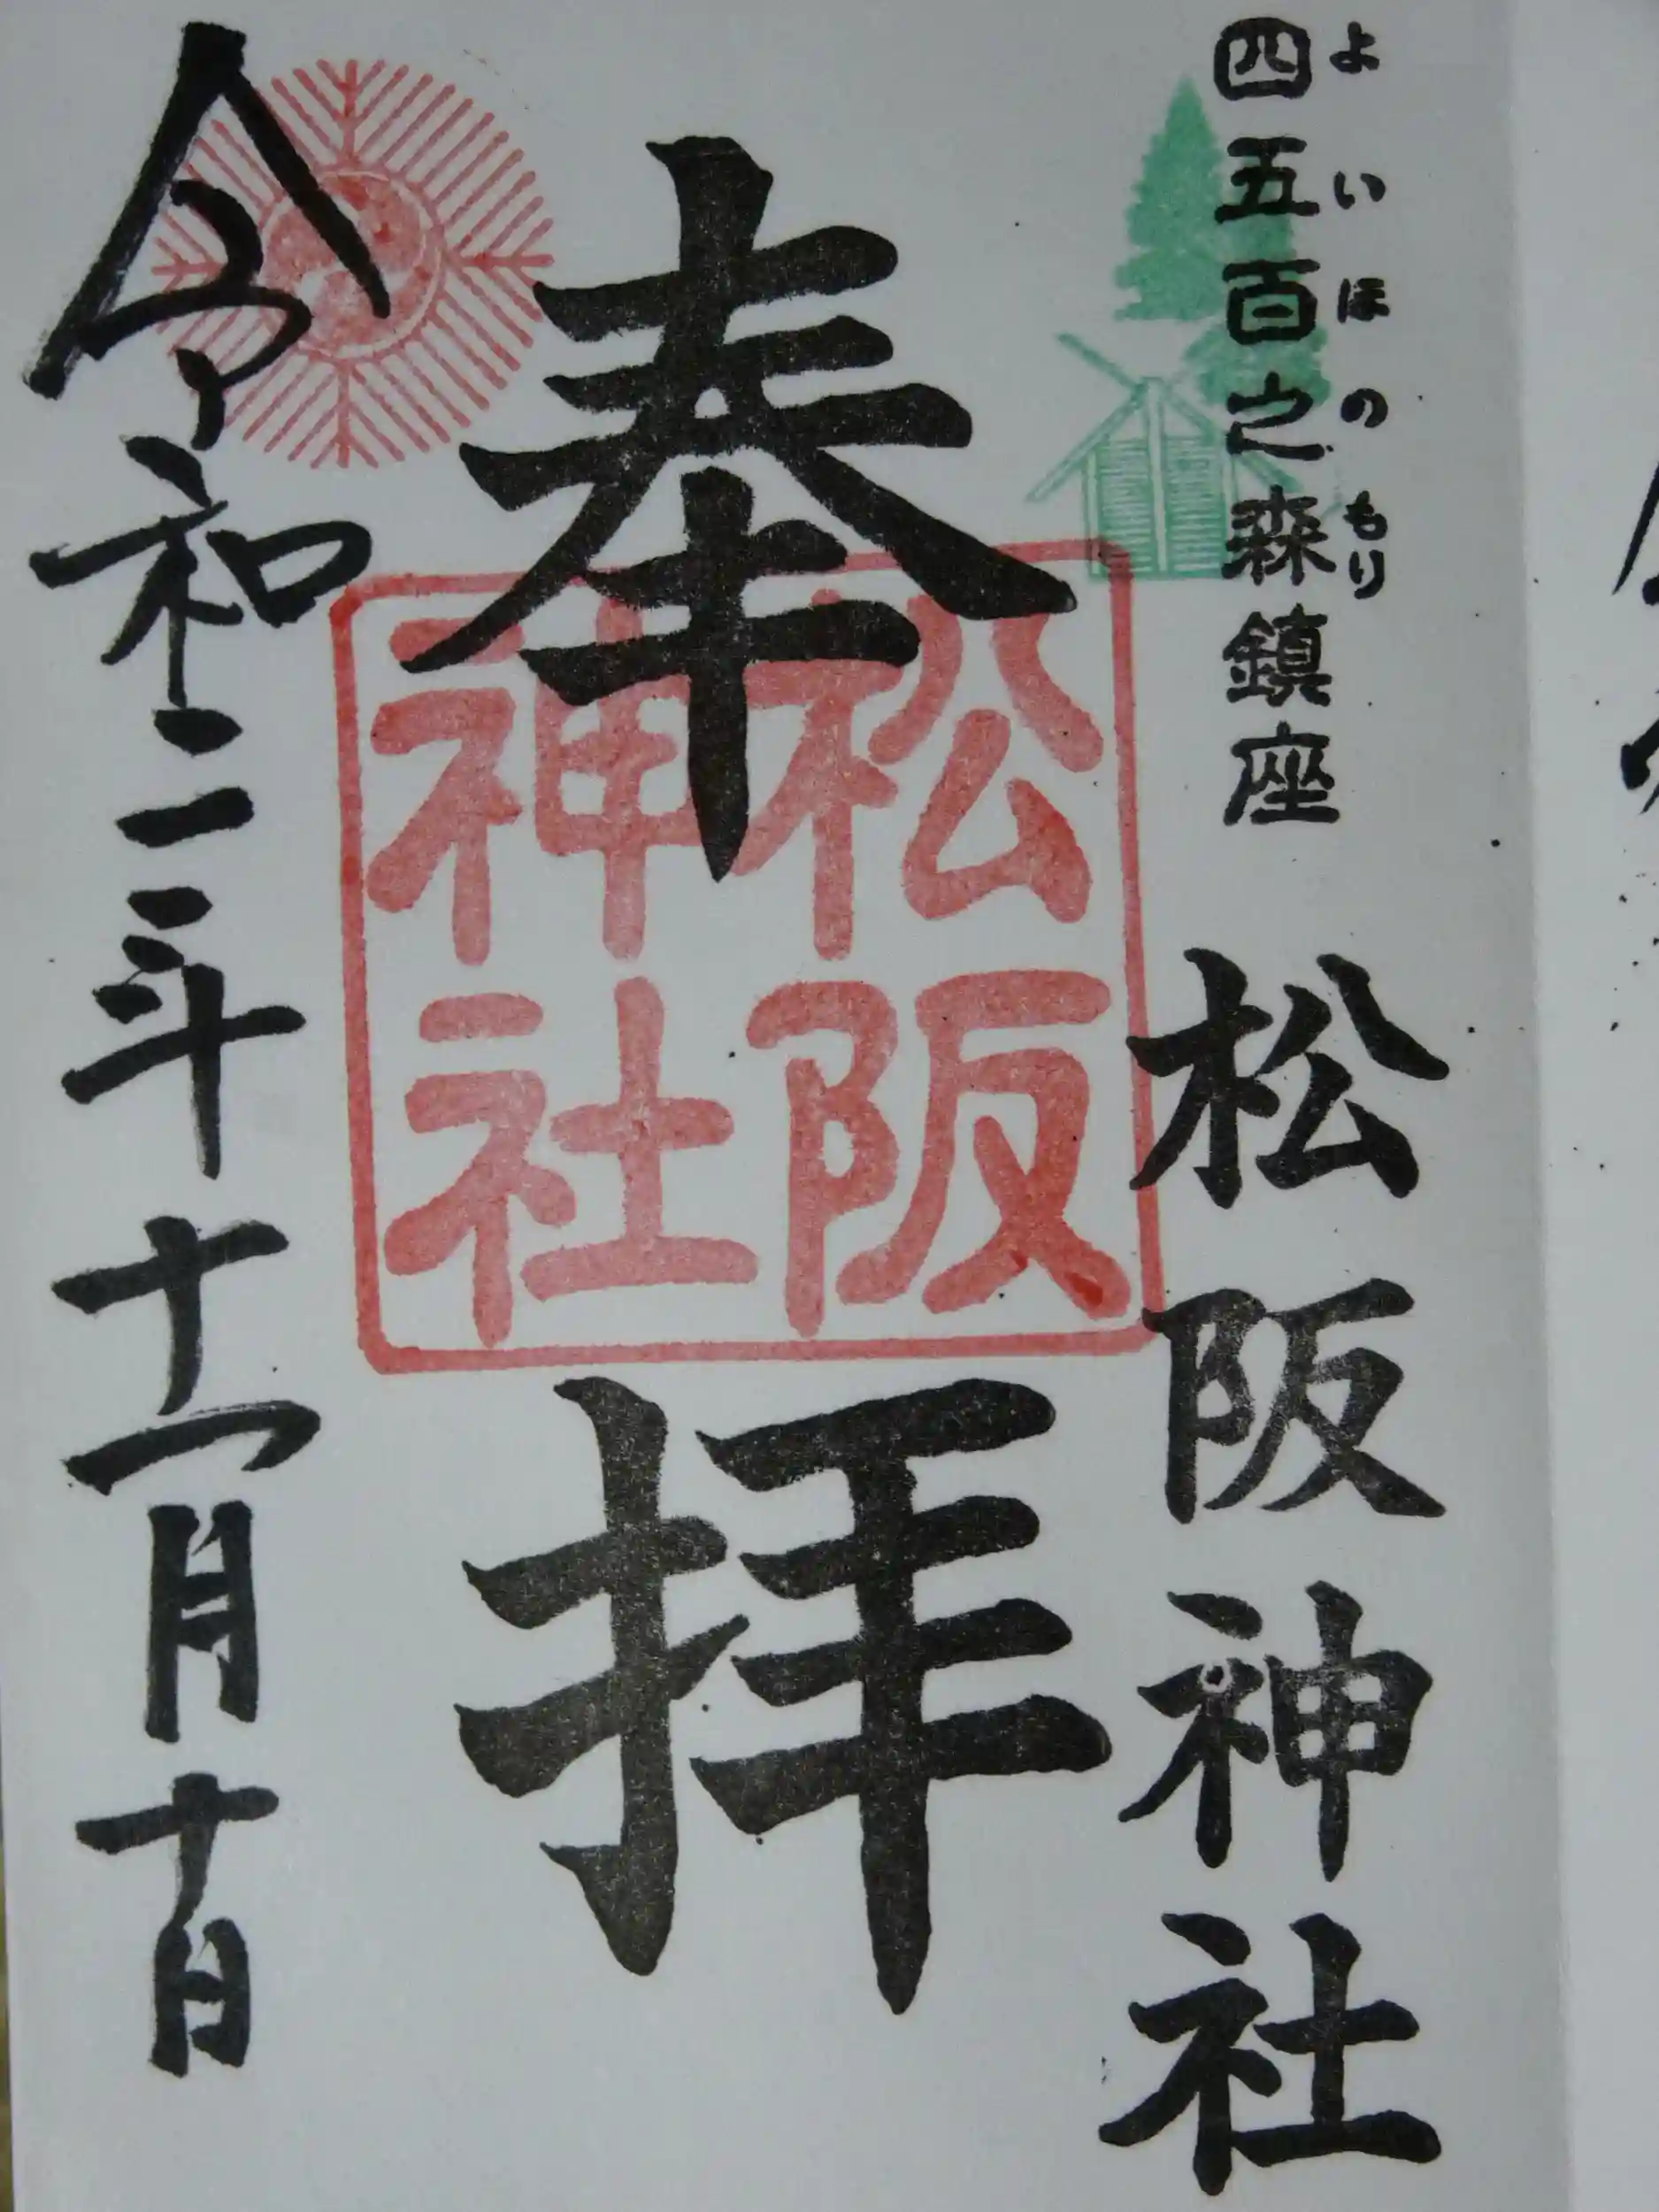 よいほのもり
四五百之森鎮座
松阪神社
奉拝
松阪
神社
令和二年十一月十日